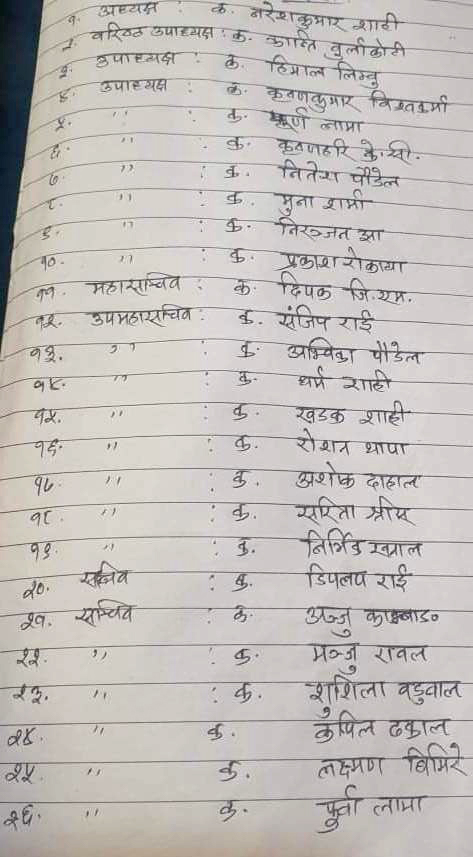 १. अध्यक्ष : क. नरेशकुमार शाही
२. वरिष्ठ उपाध्यक्ष : क. कान्ति वुलीकोटी
३. उपाध्यक्ष : क. हिमाल लिम्बु
४. उपाध्यक्ष : क. कृष्णकुमार विश्वकर्मा
५. " : क. पूर्ण लामा
६. " : क. कृष्णहरि के.सी.
७. " : क. नितेश पौडेल
८. " : क. मुना शर्मा
९. " : क. निरञ्जन झा
१०. " : क. प्रकाश रोकाया
११. महासचिव : क. दिपक जि.एम.
१२. उपमहासचिव : क. संजिप राई
१३. " : क. अम्विका पौडेल
१४. " : क. धर्म शाही
१५. " : क. खडक शाही
१६. " : क. रोशन थापा
१७. " : क. अशोक दाहाल
१८. " : क. सरिता श्रीष
१९. " : क. निर्भिक खनाल
२०. सचिव : क. डिपनप राई
२१. सचिव : क. अञ्जु
२२. " : क. मञ्जु रावल
२३. " : क. शुशिला वडुवाल
२४. " क. कपिल ढकाल
२५. " क. लक्ष्मण घिमिरे
२६. " क. पूर्वा लामा